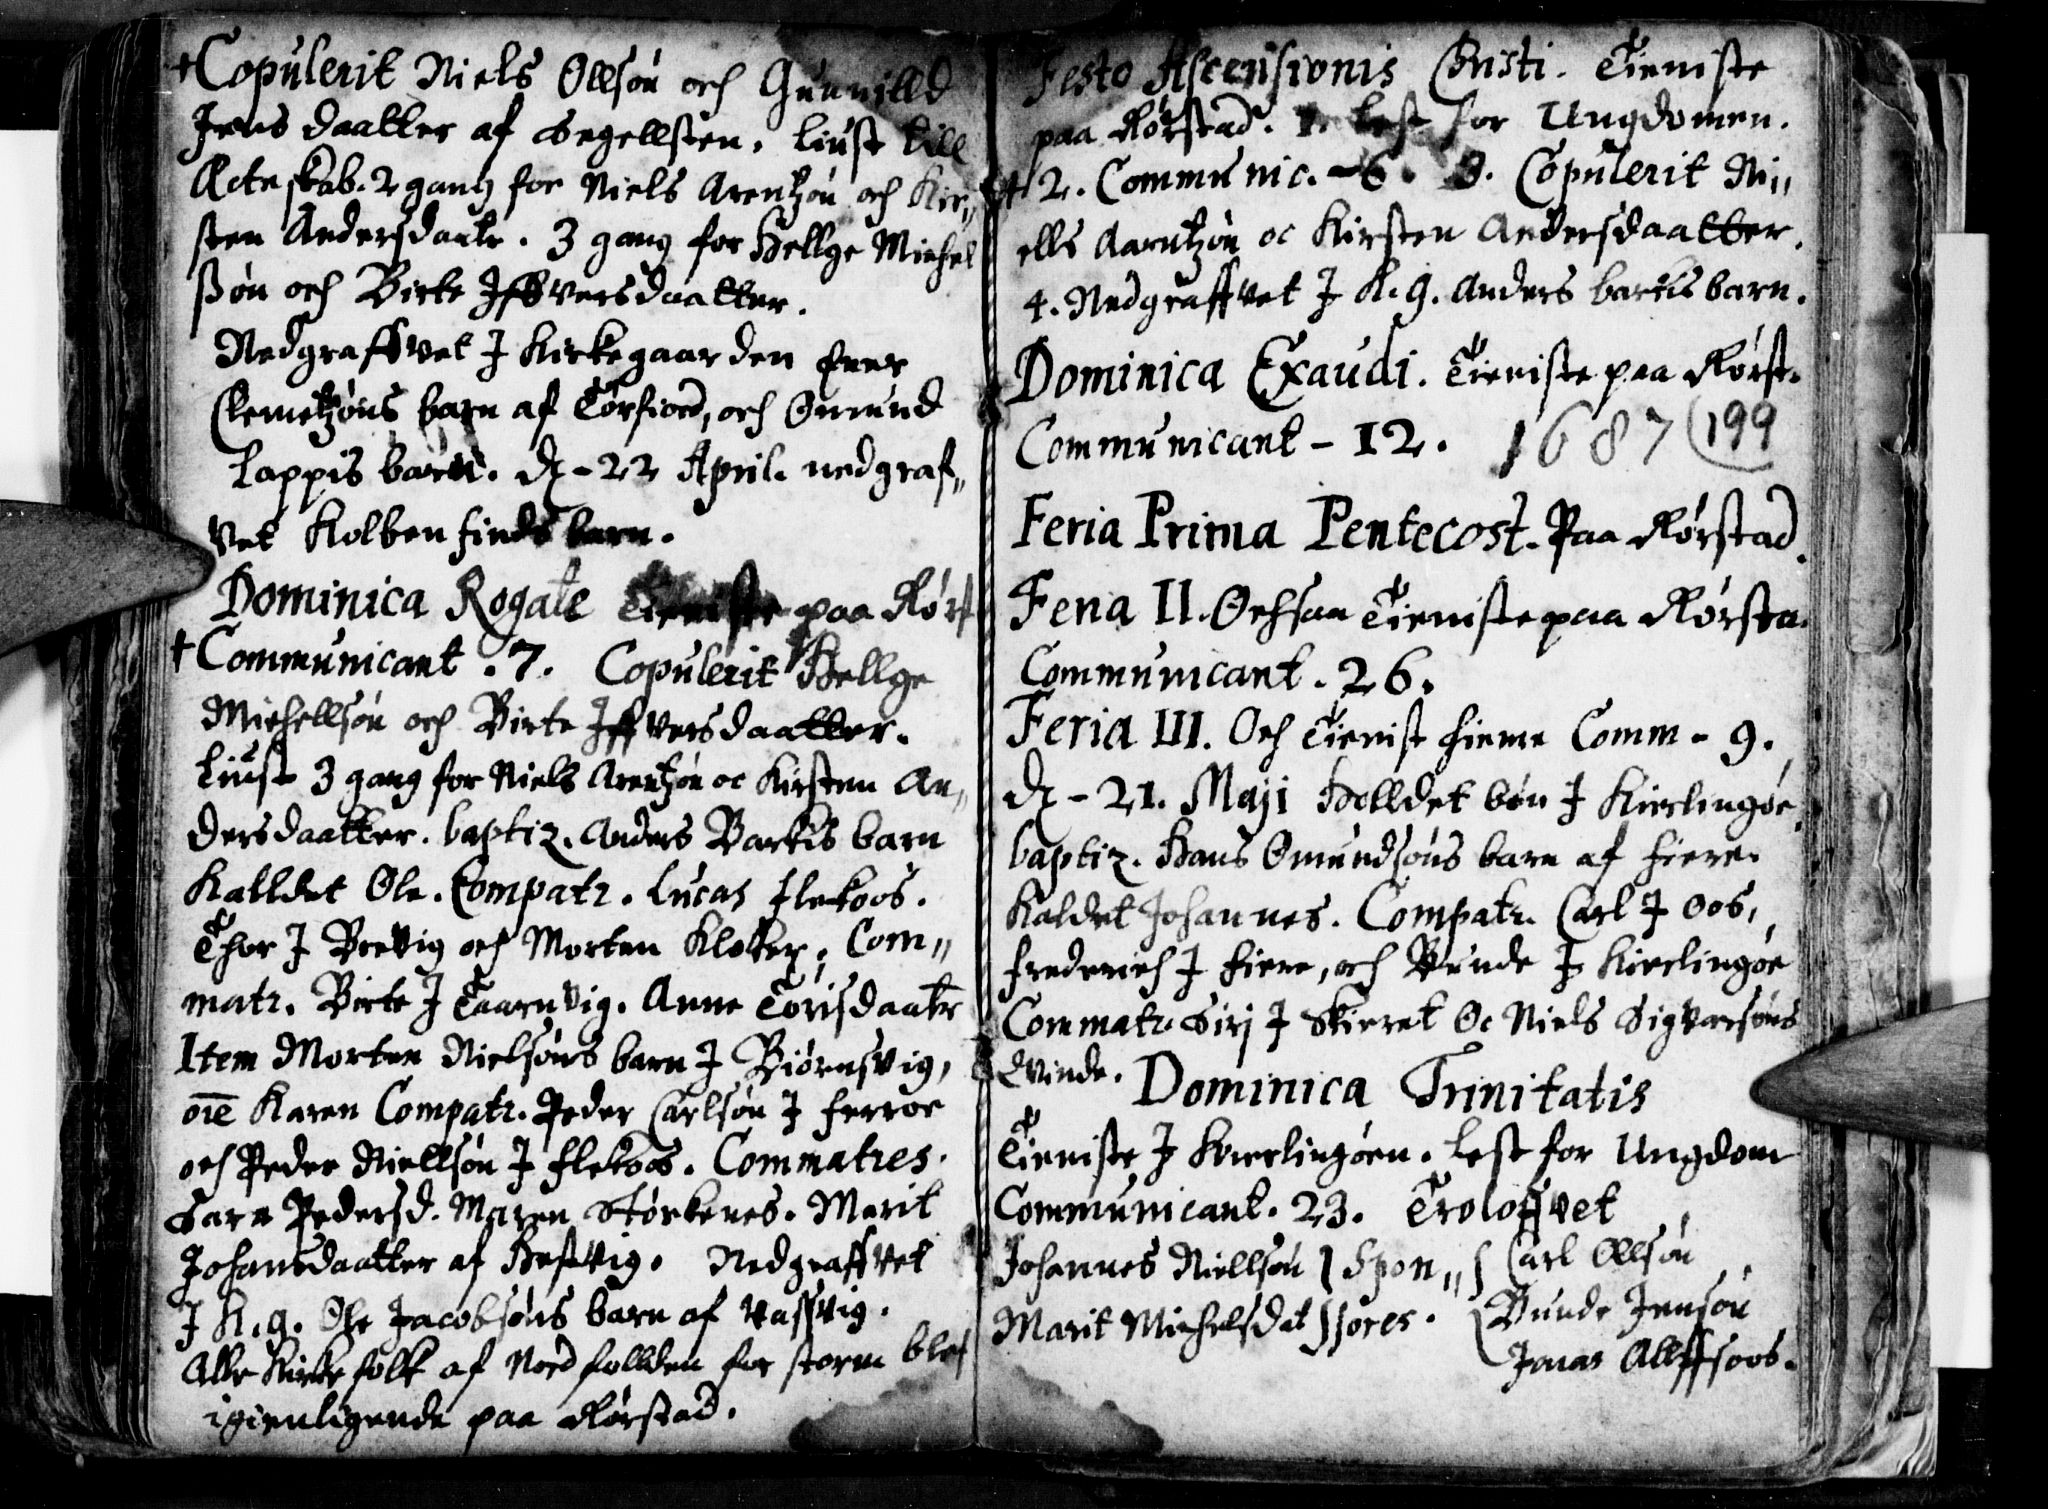 †Copulerit Niels Ollsøn och Gunnilld
Jens daatter af Segellsten. liust till
Ecteskab. 2 gang for Niels Arentzøn och Kir„
sten Andersdaatr. 3 gang for Hellge Michel
ßøn och Birte Iffversdaatter.
Nedgraffvet J Kirkegaarden Ener
Clemetzøns barn af Tørfiord, och Omund
Lappis barn. d - 22 April. nedgraf„
vet Kolben finds barn.
Dominica Rogate Tieniste paa Rørst
†Communicant . 7. Copulerit Hellge
Michellsøn och Birte Iffversdaatter.
liust 3 gang for Niels Arentzøn oc Kirsten An„
dersdaatter. baptiz. Anders Bartis barn
Kalldet Ole. Compatr. Lucas flekoos.
Thor J Brevig och Morten Klocker, Com„
matr. Birte J Taarnvig. Anne Torisdaatr
Item Morten Nielsøns barn J Biørnsvig,
Karen Compatr. Peder Carlsøn J ferroe
och Peder Niellsøn J flekoos. Commatres.
Sara Pedersd. Maren Størkenes. Marit
Johansdaatter af Hestvig. Nedgraffvet
J K. g. Ole Jacobsøns barn af Vassvig.
Alle Kirke folk af Nordfollden for storm blef
igienligende paa Rørstad.
Festo Ascensionis Christi. Tieniste
paa Rørstad. 1. Lest for Ungdomen.
† 2. Communic. - 6. 3. Copulerit Ni„
ells Aarntzøn oc Kirsten Andersdaatter.
4. Nedgraffvet J K. g. Anders bartis barn.
Dominica Exaudi. Tieniste paa Rørst.
Communicant - 12. 1687 199
Feria Prima Pentecost. Paa Rørstad.
Feria II. Ochsaa Tieniste paa Rørsta.
Communicant. 26.
Feria III. Och Tienist hieme Comm - 9.
d - 21. Maji Holldet bøn J Kierlingøe
baptiz. Hans Omundsøns barn af fiere.
Kaldet Johannes. Compatr. Carl J Oos,
frederich J fiere, och Bunde J Kierlingøe
Commatr. Siri J Skierret Oc Niels Sigvarsøns
Qvinde. Dominica Trinitatis
Tieniste J Kierlingøen. Lest for Ungdom
Communicant. 23. Troloffvet
Johannes Niellsøn } Spon„ { Carl Ollsøn
Marit Michelsdat } sores. { Bunde Jensøn
Jonas Allffsoos.